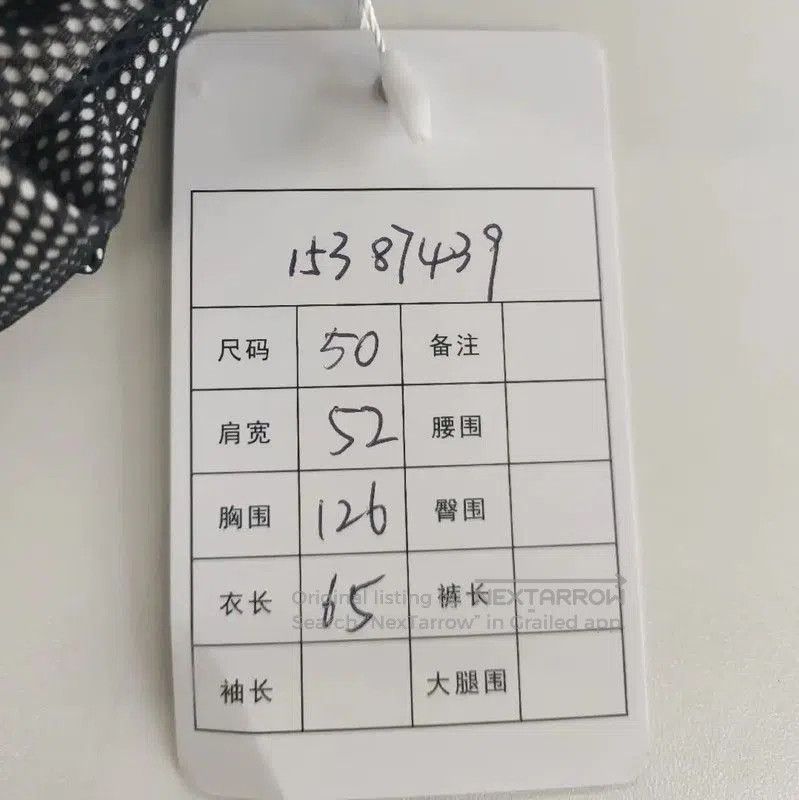 15387439
尺码 50 备注
肩宽 52 腰围
胸围 126 臀围
衣长 65 裤长
Original listing by NEXTARROW
Search "NexTarrow" in Grailed app
袖长 大腿围